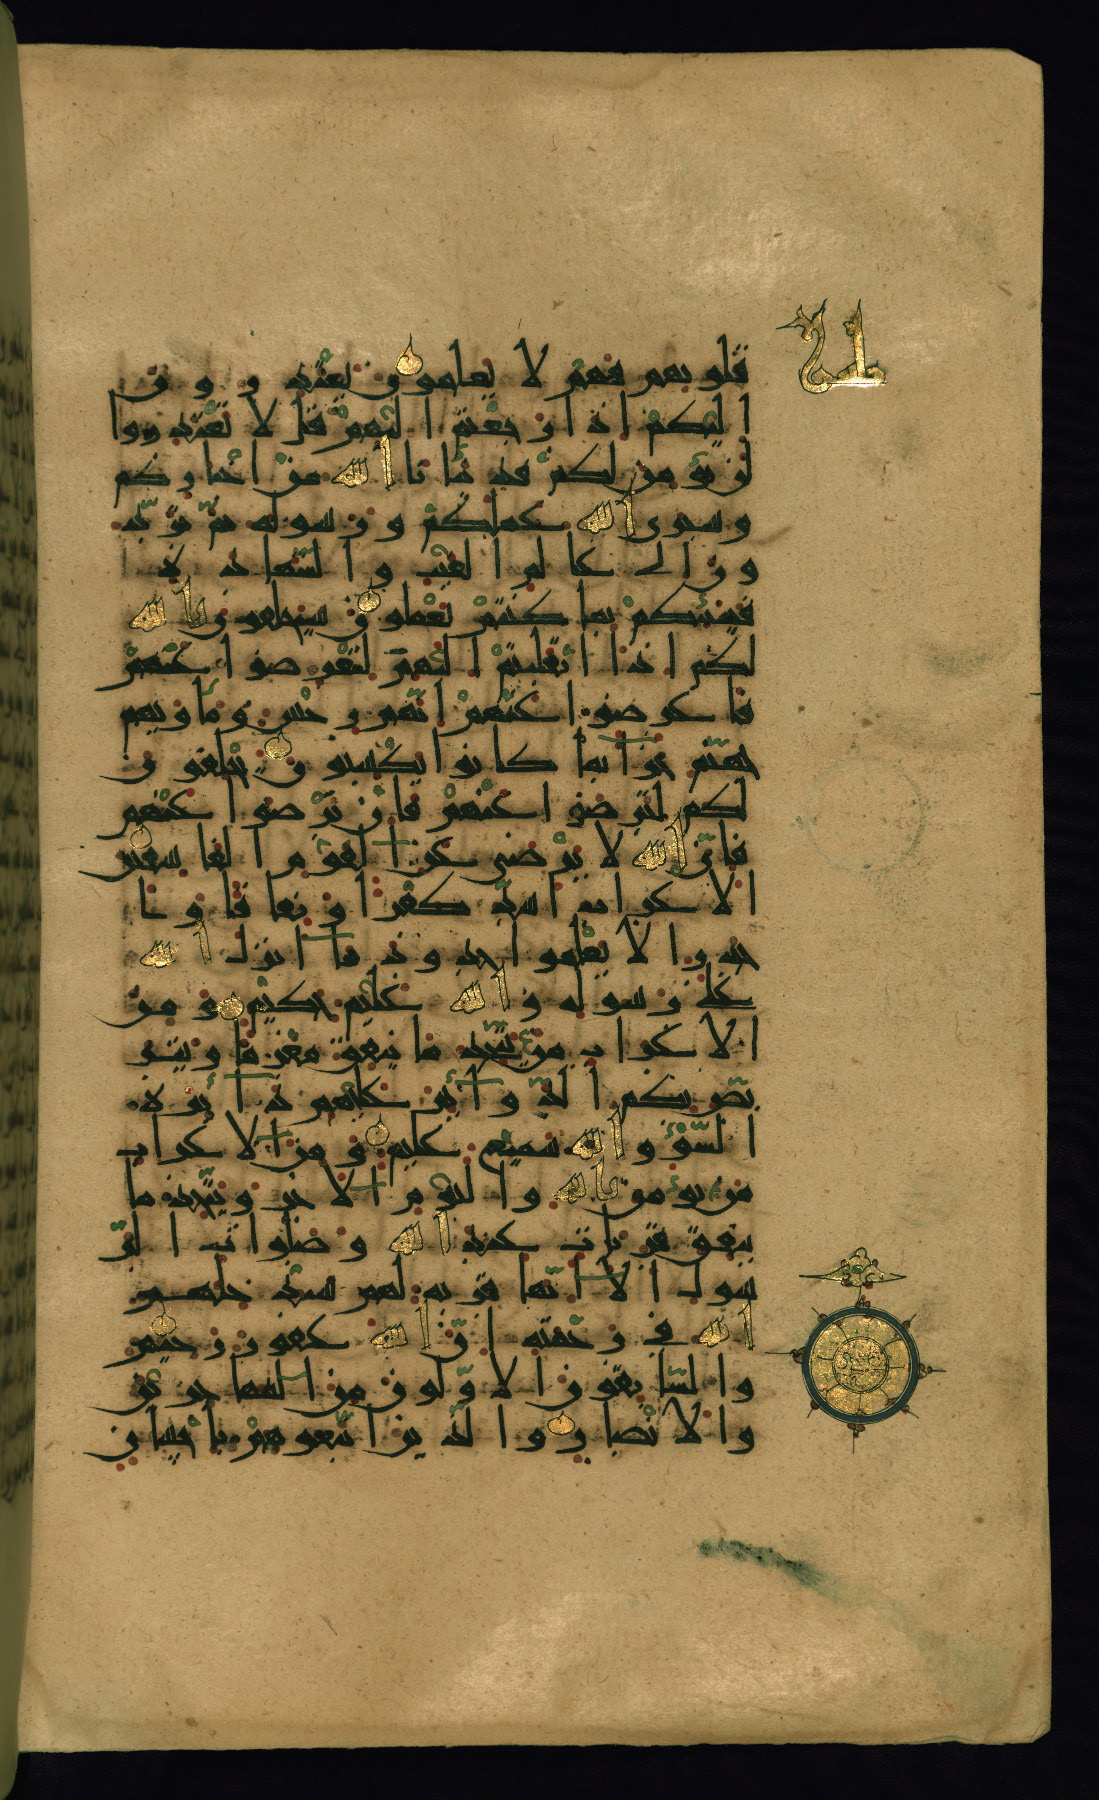 قلوبهم فهم لا يعلمون يعتذرون
اليكم اذا رجعتم اليهم قل لا تعتذروا
لن نؤمن لكم قد نبانا الله من اخباركم
وسيرى الله عملكم ورسوله ثم ترد
ون الى عالم الغيب والشهادة
فينبئكم بما كنتم تعملون سيحلفون بالله
لكم اذا انقلبتم اليهم لتعرضوا عنهم
فاعرضوا عنهم انهم رجس وماويهم
جهنم جزاء بما كانوا يكسبون يحلفون
لكم لترضوا عنهم فان ترضوا عنهم
فان الله لا يرضى عن القوم الفاسقين
الاعراب اشد كفرا ونفاقا وا
جدر الا يعلموا حدود ما انزل الله
على رسوله والله عليم حكيم ومن
الاعراب من يتخذ ما ينفق مغرما ويتر
بص بكم الدوائر عليهم دائرة
السوء والله سميع عليم ومن الاعراب
من يؤمن بالله واليوم الاخر ويتخذ ما
ينفق قربات عند الله وصلوات الر
سول الا انها قربة لهم سيدخلهم
الله في رحمته ان الله غفور رحيم
والسابقون الاولون من المهاجرين
والانصار والذين اتبعوهم باحسان